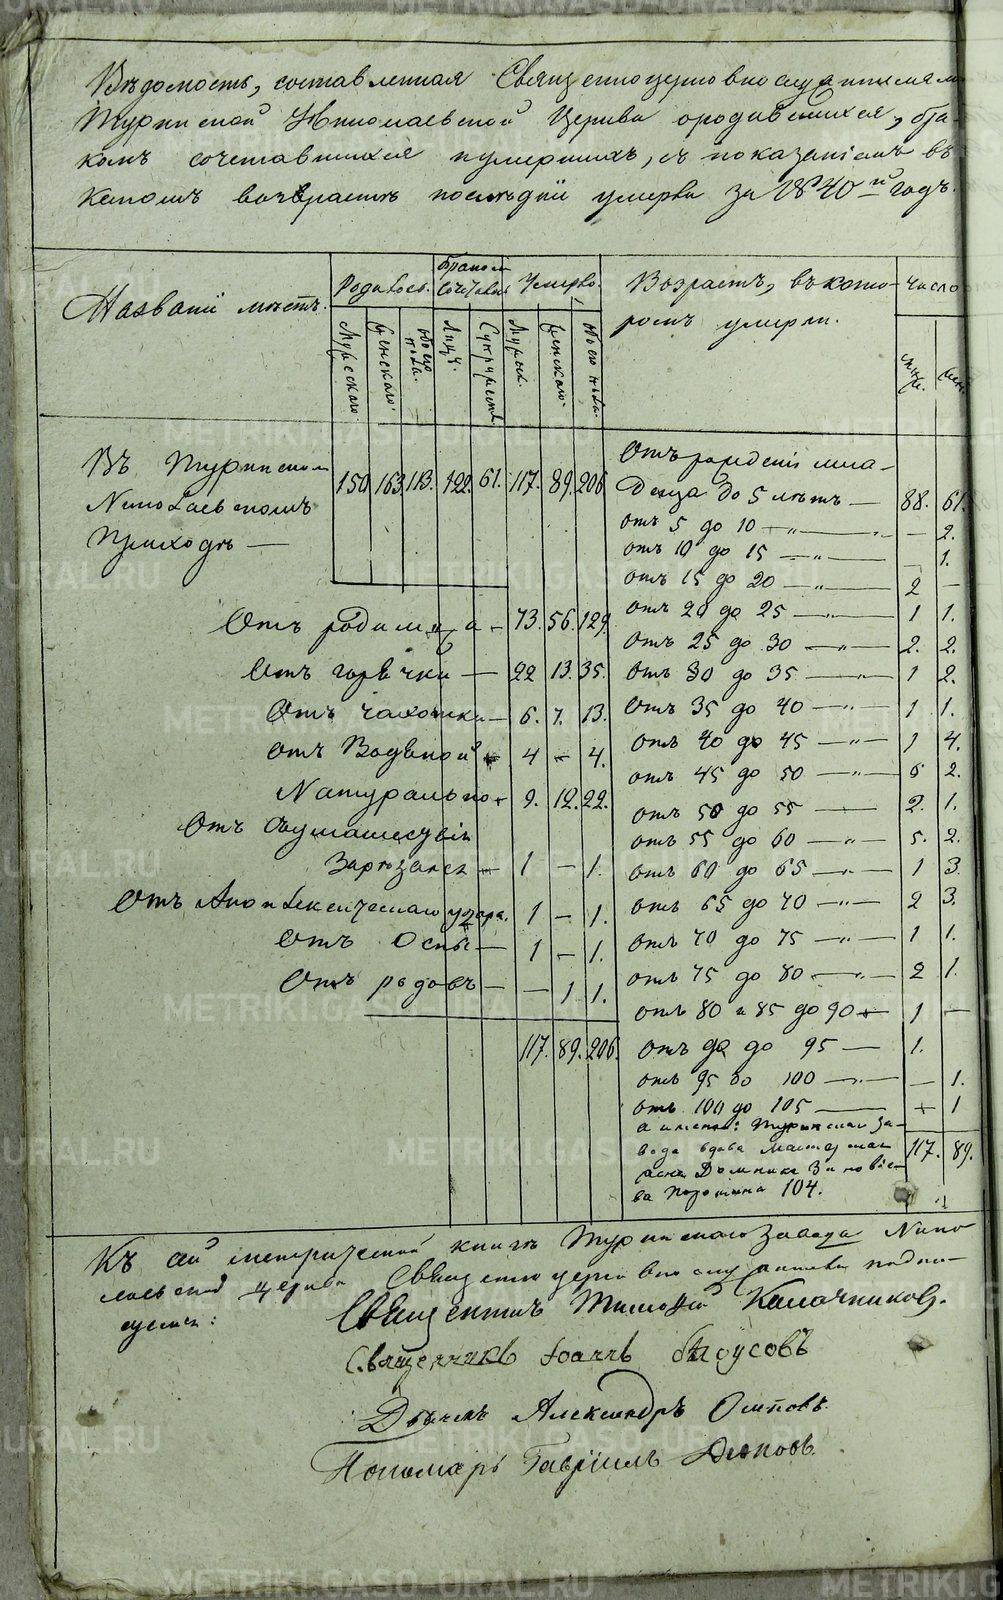 Вѣдомость, составленная Священноцерковнослужителями
Туринской Николаевской Церкви ородившихся, бра-
комъ сочетавшихся иумершихъ, съ показаніемъ въ
какомъ возврастѣ послѣдніи умерли за 1840й годъ.
Названіи мѣстъ.
Родилось.
Бракомъ сочетались
Умерло.
Возрастъ, въ кото-
ромъ умерли.
Число
Мужескаго.
Женскаго.
Обоего пола.
Лицъ.
Супружествъ
Мужск.
Женскаго.
Обоего пола.
муж.
жен.
Въ Туринскомъ
Николаевскомъ
Приходѣ —
150 163 313. 122. 61. 117. 89. 206
Отъ рожденія мла-
денца до 5 лѣтъ — 88. 61.
отъ 5 до 10 — „ — — 2.
отъ 10 до 15 — „ — — 1.
отъ 15 до 20 — „ — 2 —
отъ 20 до 25 — „ — 1 1.
отъ 25 до 30 — „ — 2. 2.
отъ 30 до 35 — „ — 1 2.
отъ 35 до 40 — „ — 1 1.
отъ 40 до 45 — „ — 1 4.
отъ 45 до 50 — „ — 6 2.
отъ 50 до 55 — 2. 1.
отъ 55 до 60 — „ — 5. 2.
отъ 60 до 65 — „ — 1 3.
отъ 65 до 70 — „ — 2 3.
отъ 70 до 75 — „ — 1 1.
отъ 75 до 80 — „ — 2 1.
отъ 80 и 85 до 90 — 1 —
отъ 90 до 95 — 1.
отъ 95 до 100 — „ — — 1.
отъ 100 до 105 — — 1
а именно: Туринскаго За-
вода вдова
Домника Зиновіе-
ва 104.
117. 89.
Отъ родимца — 73. 56. 129.
Отъ горячки — 22 13. 35.
Отъ чахотки — 6. 7. 13.
отъ Водяной — 4 — 4.
Натурально — 9. 12. 22.
Отъ сумашествія
Зарѣзался — 1 — 1.
Отъ Апоплексическаго удара. 1 — 1.
Отъ Оспы — 1 — 1.
Отъ родовъ — — 1 1.
117. 89. 206.
Къ сей метрической книгѣ Туринскаго Завода Нико-
лаевской Церкви Священноцерковнослужители подпи-
суемся:
Священникъ Тимоѳей Калачниковъ.
Священникъ Іоаннъ Бѣлоусовъ
Дьячекъ Александръ Осиповъ.
Пономарь Гавріилъ
METRIKI.GASO-URAL.RU